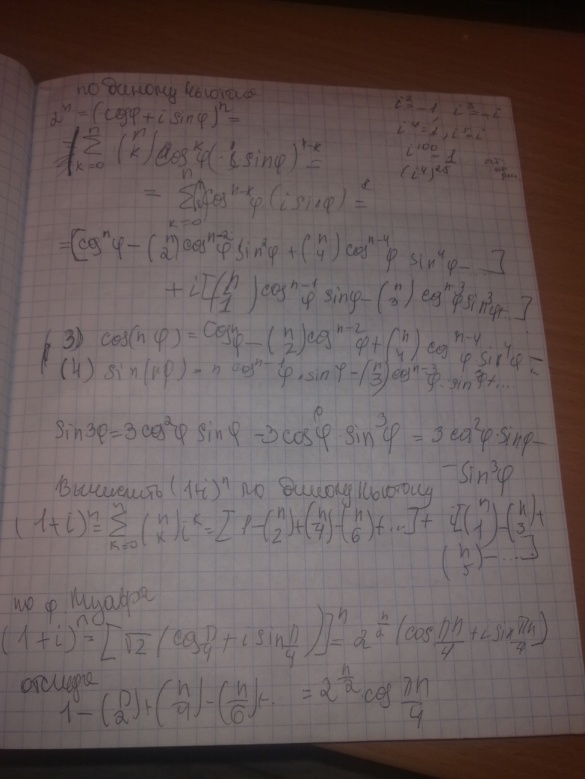 по биному Ньютона
i² = -1, i³ = -i
zⁿ = (cosφ + i sinφ)ⁿ =
i⁴ = 1, i⁵ = i
i¹⁰⁰ = 1
(i⁴)²⁵
= Σ_{k=0}^{n} (n k) cos^k φ (i sinφ)^{n-k} =
= Σ_{k=0}^{n} cos^{n-k} φ (i sinφ)^k =
= [cosⁿφ - (n 2) cos^{n-2}φ sin²φ + (n 4) cos^{n-4}φ sin⁴φ - ...]
+ i[(n 1) cos^{n-1}φ sinφ - (n 3) cos^{n-3}φ sin³φ ...]
(3) cos(nφ) = cosⁿφ - (n 2) cos^{n-2}φ + (n 4) cos^{n-4}φ sin⁴φ - ...
(4) sin(nφ) = n cos^{n-1}φ · sinφ - (n 3) cos^{n-3}φ · sin³φ + ...
sin3φ = 3cos²φ sinφ - 3cos⁰φ · sin³φ = 3cos²φ · sinφ -
- sin³φ
Вычислить (1+i)ⁿ по биному Ньютону
(1+i)ⁿ = Σ_{k=0}^{n} (n k) i^k = [1 - (n 2) + (n 4) - (n 6) + ...] + i[(n 1) - (n 3) +
(n 5) - ...]
по ф. Муавра
(1+i)ⁿ = [√2 (cos π/4 + i sin π/4)]ⁿ = 2^{n/2} (cos πn/4 + i sin πn/4)
отсюда
1 - (n 2) + (n 4) - (n 6) + .. = 2^{n/2} cos πn/4